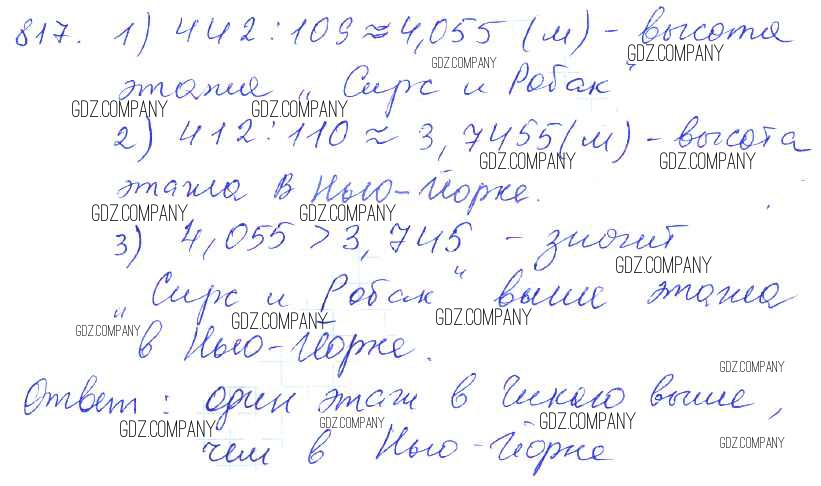 817. 1) 442 : 109 ≈ 4,055 (м) – высота
GDZ.COMPANY GDZ.COMPANY
этажа „Сирс и Робак"
GDZ.COMPANY GDZ.COMPANY
2) 412 : 110 ≈ 3,7455 (м) – высота
GDZ.COMPANY GDZ.COMPANY
этажа в Нью-Йорке.
GDZ.COMPANY GDZ.COMPANY
3) 4,055 > 3,745 – значит
GDZ.COMPANY
„Сирс и Робак" выше этажа
GDZ.COMPANY GDZ.COMPANY GDZ.COMPANY
в Нью-Йорке.
GDZ.COMPANY
Ответ: один этаж в Чикаго выше,
GDZ.COMPANY GDZ.COMPANY GDZ.COMPANY
чем в Нью-Йорке
GDZ.COMPANY